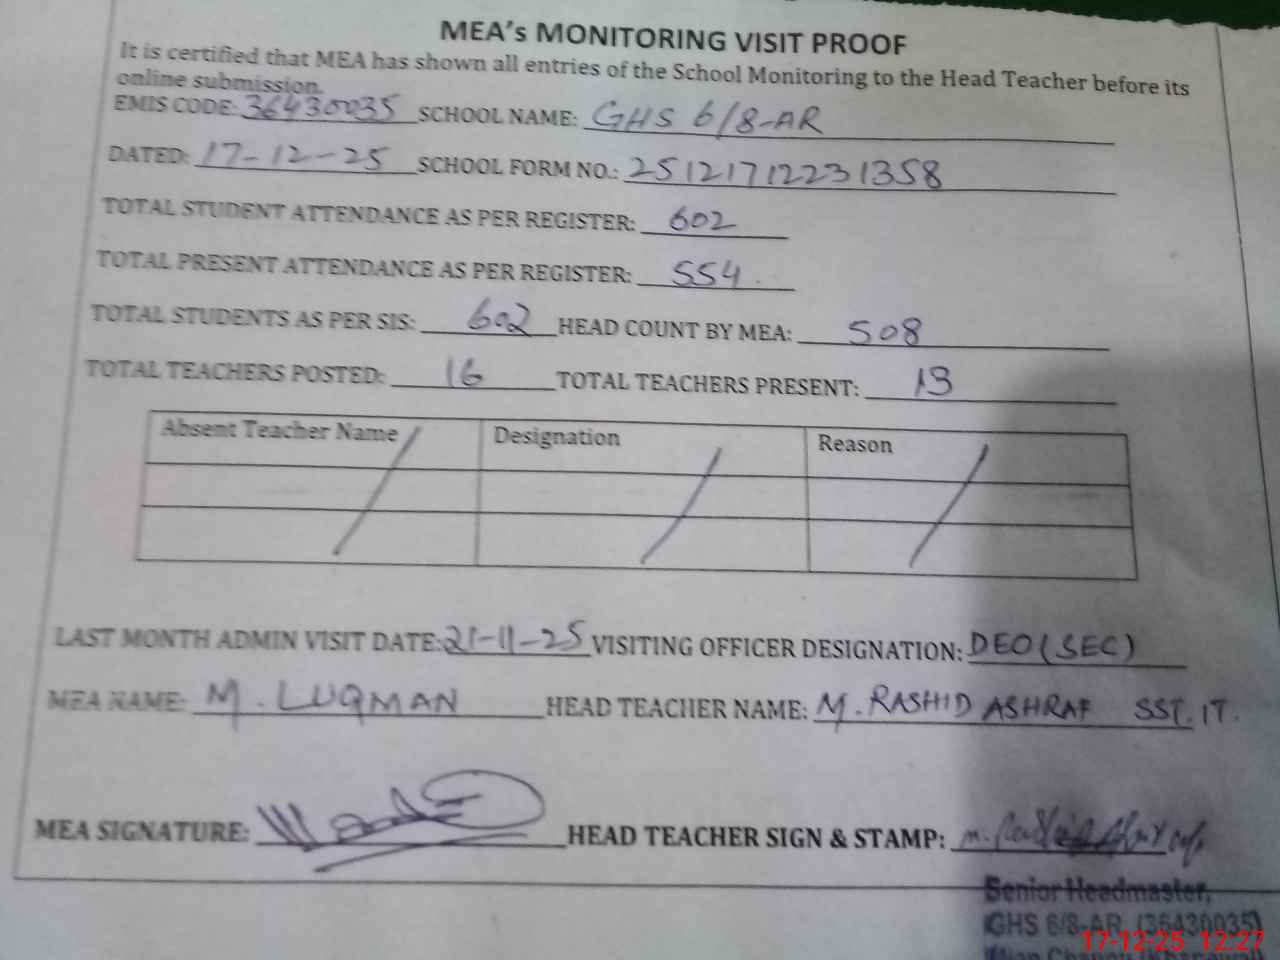 MEA's MONITORING VISIT PROOF
It is certified that MEA has shown all entries of the School Monitoring to the Head Teacher before its
online submission.
EMIS CODE: 36430035 SCHOOL NAME: GHS 6/8-AR
DATED: 17-12-25 SCHOOL FORM NO.: 251217122231358
TOTAL STUDENT ATTENDANCE AS PER REGISTER: 602
TOTAL PRESENT ATTENDANCE AS PER REGISTER: 554.
TOTAL STUDENTS AS PER SIS: 602 HEAD COUNT BY MEA: 508
TOTAL TEACHERS POSTED: 16 TOTAL TEACHERS PRESENT: 13
Absent Teacher Name Designation Reason
LAST MONTH ADMIN VISIT DATE: 21-11-25 VISITING OFFICER DESIGNATION: DEO (SEC)
MEA NAME: M. LUQMAN HEAD TEACHER NAME: M. RASHID ASHRAF SST.IT.
MEA SIGNATURE: HEAD TEACHER SIGN & STAMP:
Senior Headmaster,
GHS 6/8-AR (36430035)
17-12-25 12:27